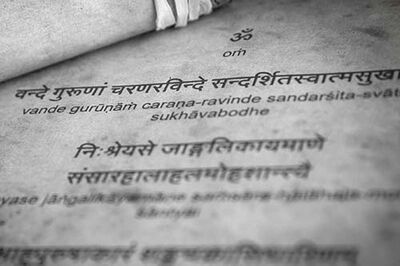 ॐ
oṁ
वन्दे गुरूणां चरणरविन्दे सन्दर्शितस्वात्मसुखा
vande gurūṇāṁ caraṇa-ravinde sandarśita-svāt
sukhāvabodhe
निःश्रेयसे जाङ्गलिकायमाने
संसारहालाहलमोहशान्त्यै
yase jāṅgalikāyamāne
śāntyai